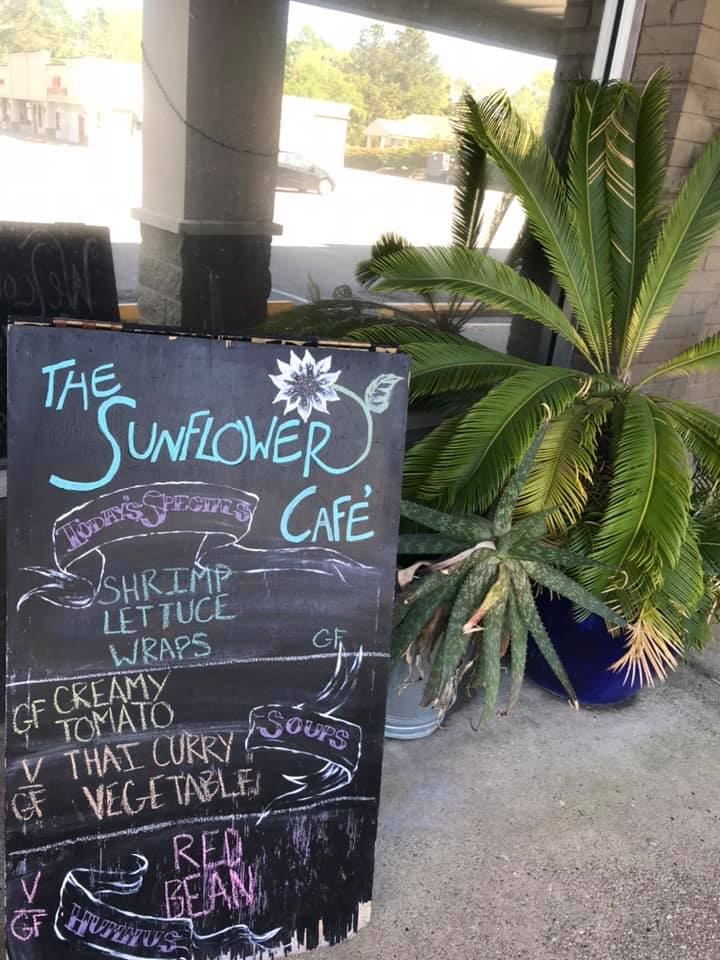 THE
SUNFLOWER
CAFÉ
TODAY'S SPECIALS
SHRIMP
LETTUCE
WRAPS GF
GF CREAMY
TOMATO
SOUPS
V
GF THAI CURRY
VEGETABLE
V
GF RED
BEAN
HUMMUS